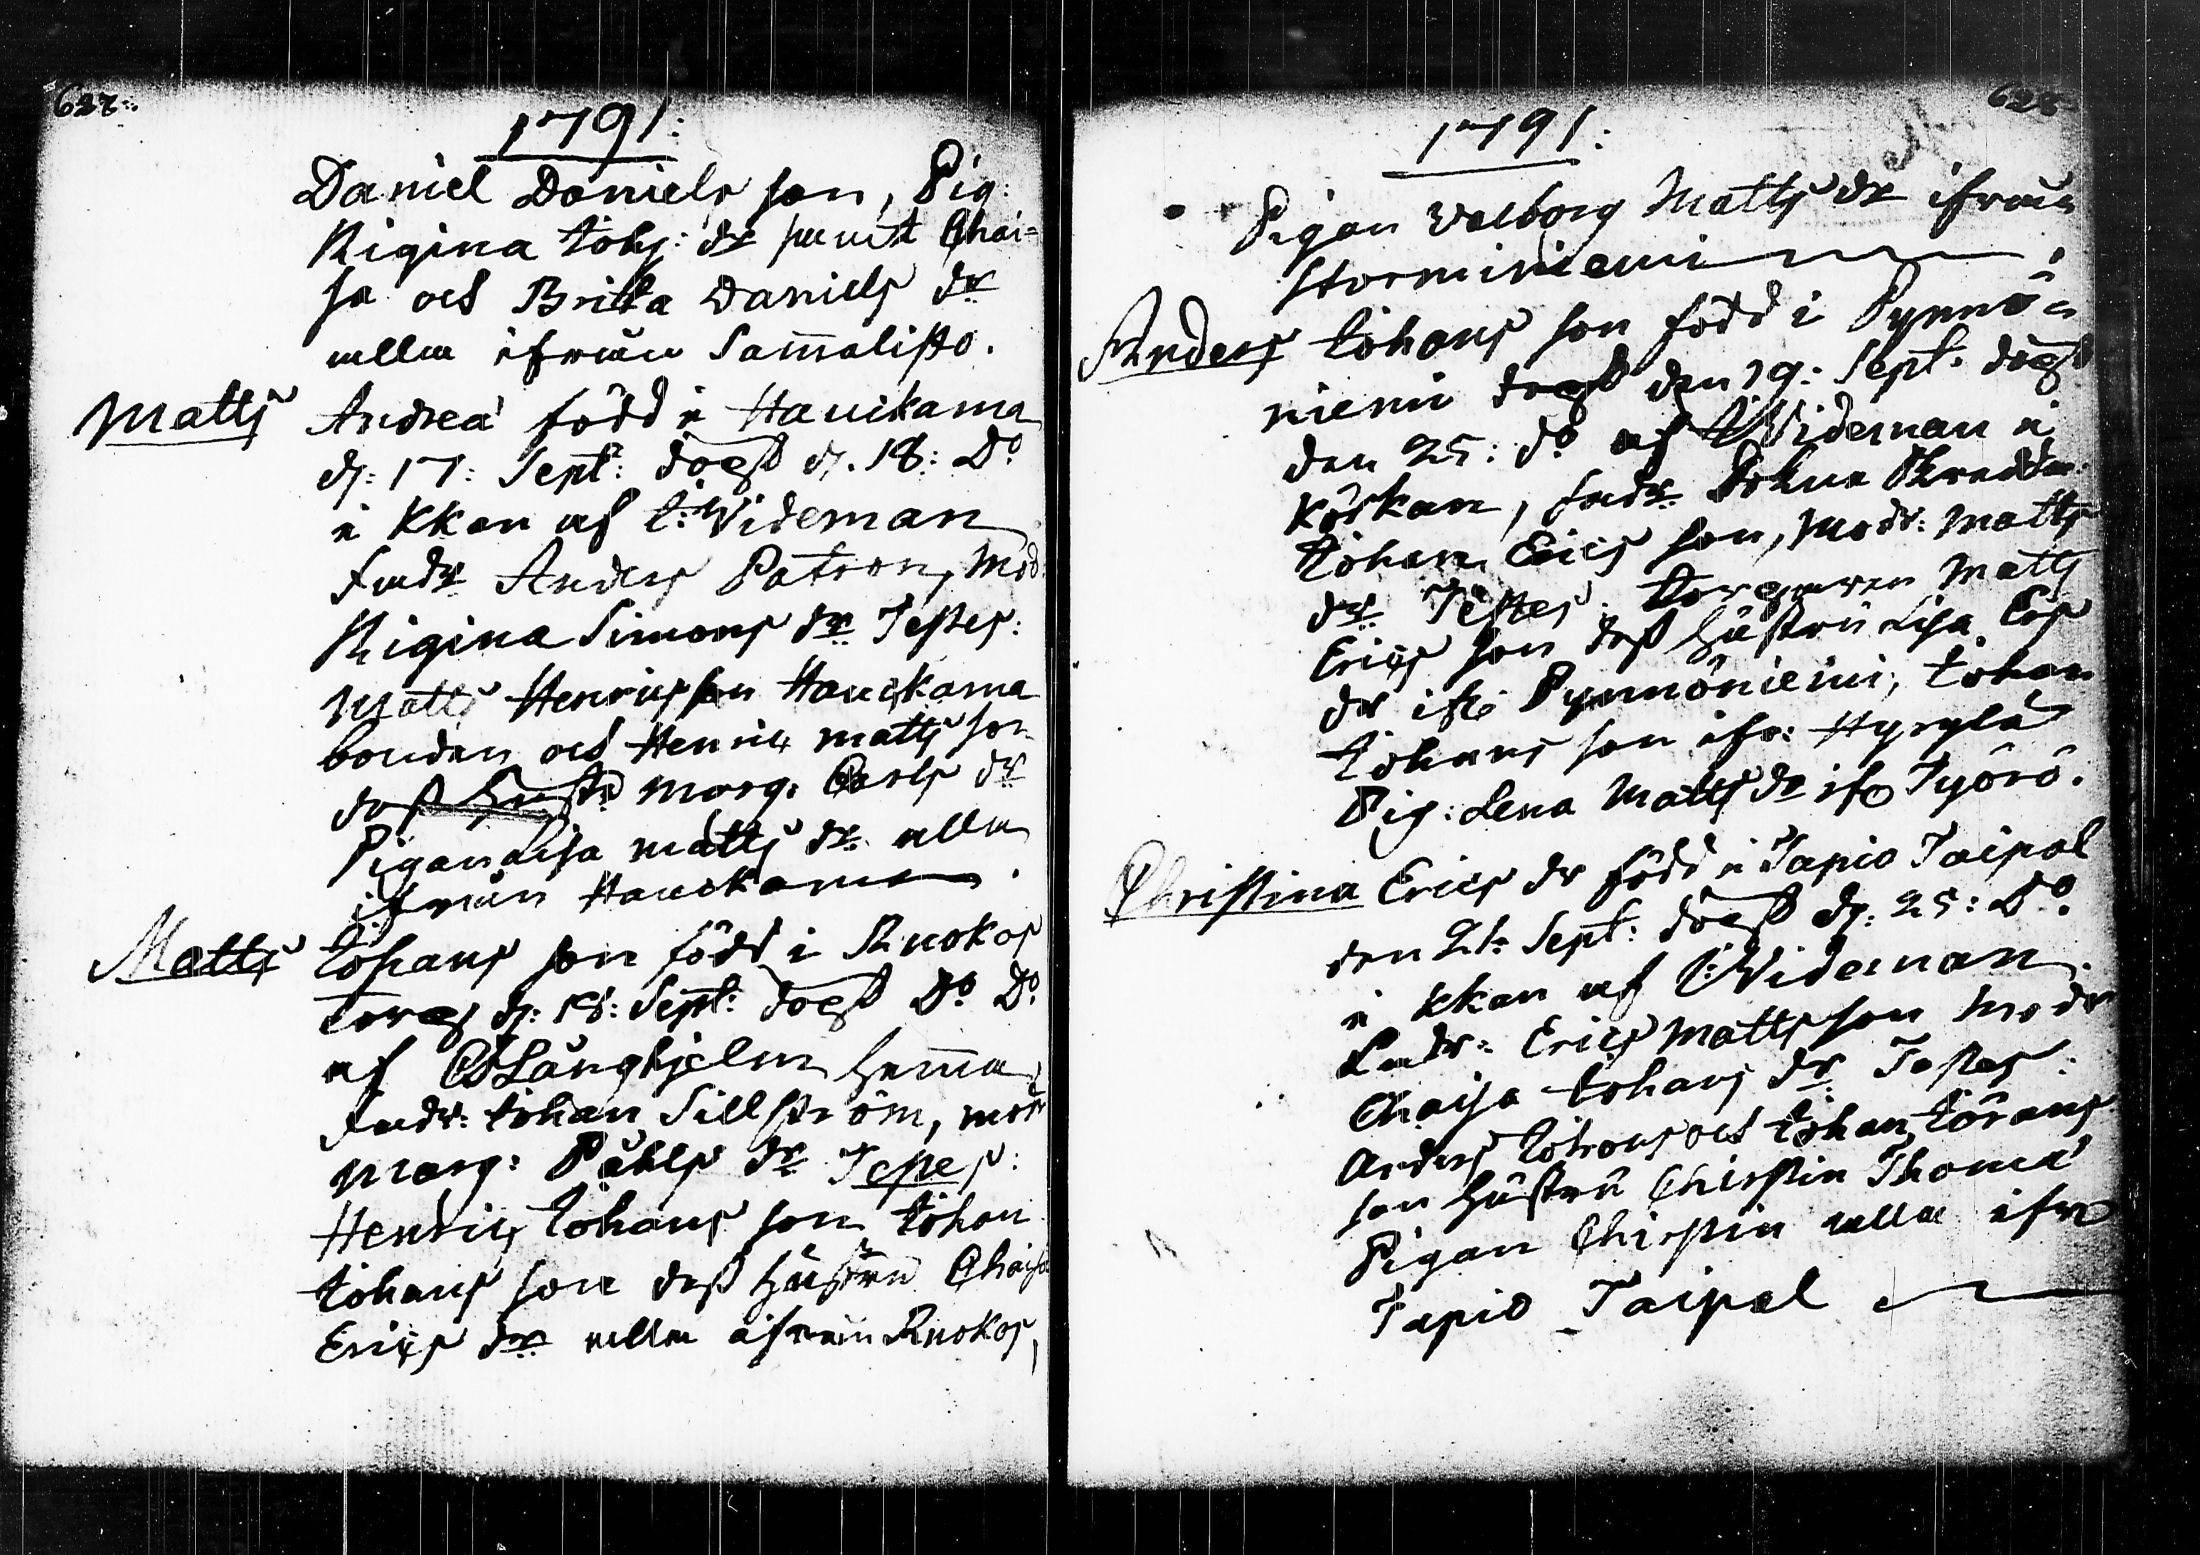 627:
1791:
Daniel Daniels son, Pig:
Rigina Johs: dr samt Chai=
sa och Britta Daniels dr
alla ifrån Sam̅alisto.
Matts Andreæ född i Hauckama
d: 17: Sept: döpt d. 18: Do
i Kkan af C: Wideman
fadr Anders Patron, Mod:
Rigina Simons dr Testes:
Matts Henricsson Hauckama
bonden och Henric Matts son
dess Hustr Marg. Carls dr
Pigan Lisa Matts dr alla
ifrån Hauckama.
Matts Johans son född i Ruokos
Torp d: 18: Sept: döpt Do Do
af Långhjelm hem̅a
fadr: Johan Sillström, modr
Marg: Påhls dr Testes:
Henric Johans son Johan
Johans son dess Hustru Chaisa
Erics dr alla ifrån Ruokos,
628
1791:
Pigan Walborg Matts dr ifrån
Storminiemi
Anders Johans son född i Pynnö=
niemi den 19: Sept. döpt
den 25: do af Wideman i
Körkan, fadr: Sokne Skreddar:
Johan Erics son, Modr: Matts
dr Testes: Torparen Matts
Erics son dess Hustru Lisa Ers
dr ifr Pynnöniemi, Johan
Johans son ifr: Hyrylä
Pig: Lena Matts dr ifr Työrö.
Christina Erics dr född i Tapio Taipal
den 21: Sept: döpt d: 25: Do.
i Kkan af C: Wideman.
Fadr: Erics Matts son Modr
Chaisa Johans dr. Testes:
Anders Johans och Johan Jörans
son Hustru Christin Thomæ
Pigan Christin alla ifr
Tapio Taipal